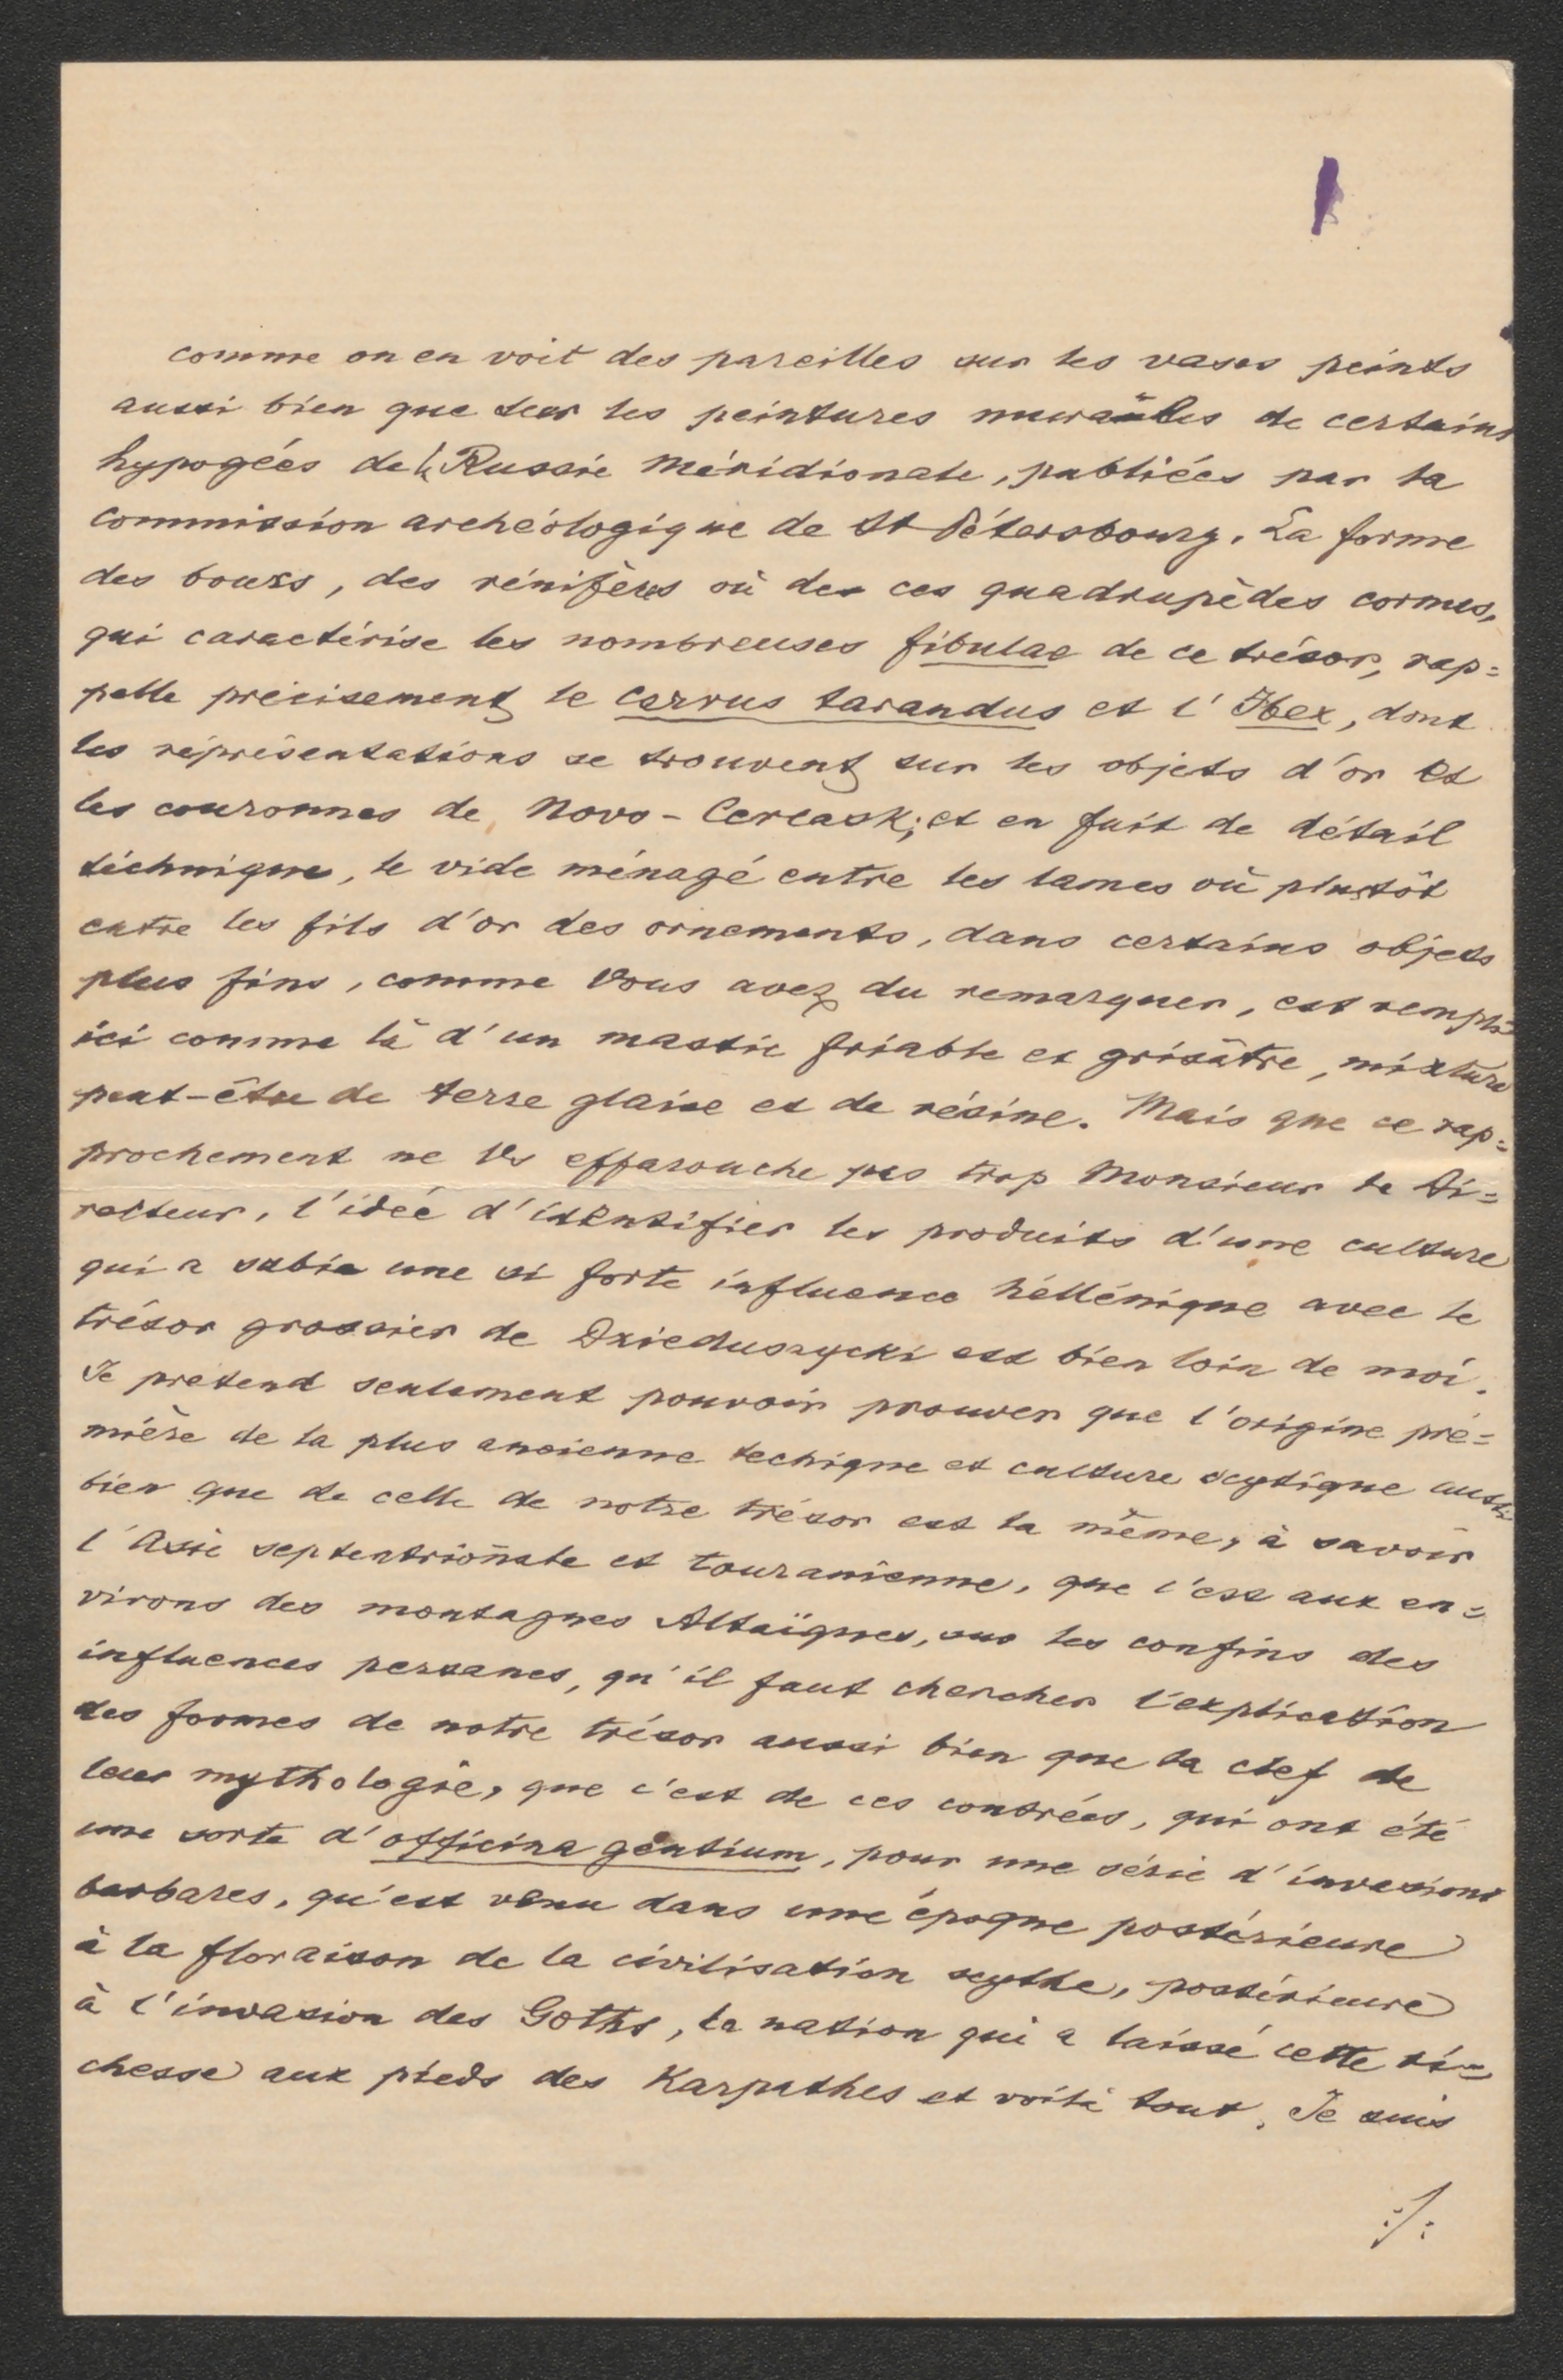 comme on en voit des pareilles sur les vases peints
aussi bien que sur les peintures murales de certains
hypogées de la Russie méridionale, publiées par la
commission archéologique de St Pétersbourg. La forme
des boucs, des rénifères où des ces quadrupèdes cornus,
qui caractérise les nombreuses fibulae de ce trésor, rap=
pelle précisement le cervus tarandus et l'Ibex, dont
les réprésentations se trouvent sur les objets d'or et
les couronnes de Novo-Cercask; et en fait de détail
téchnique, le vide ménagé entre les lames où plustôt
entre les fils d'or des ornements, dans certains objets
plus fins, comme Vous avez du remarquer, est rempli
ici comme là d'un mastic friable et grisâtre, mixture
peut-être de terre glaise et de résine. Mais que ce rap=
prochement ne Vs effarouche pas trop Monsieur le Di=
recteur, l'idée d'identifier les produits d'une culture
qui a subie une si forte influence héllénique avec le
trésor grossier de Dzieduszycki est bien loin de moi.
Je prétend seulement pouvoir prouver que l'origine pré=
mière de la plus ancienne technique et culture scytique aussi
bien que de celle de notre trésor est la même, à savoir
l'Asie septentrionale et touranienne, que c'est aux en=
virons des montagnes Altaïques, sur les confins des
influences persanes, qu'il faut chercher l'explication
des formes de notre trésor aussi bien que la clef de
leur mythologie, que c'est de ces contrées, qui ont été
une sorte d'officina gentium, pour une série d'invasions
barbares, qu'est venu dans une époque postérieure
à la floraison de la civilisation scythe, postérieure
à l'invasion des Goths, la nation qui a laissé cette ri=
chesse aux pieds des Karpathes et voilà tout. Je suis
:/: